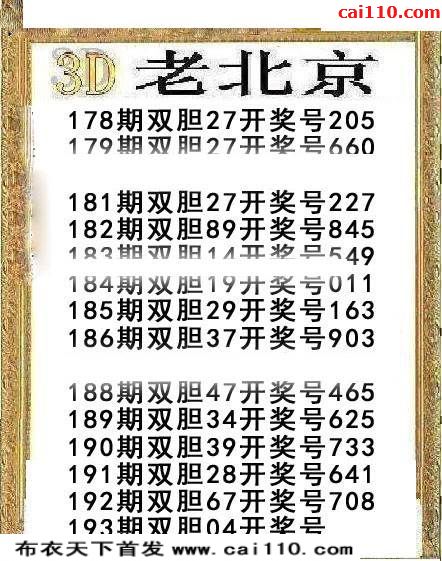 cai110.com
3D 老北京
178期双胆27开奖号205
179期双胆27开奖号660
181期双胆27开奖号227
182期双胆89开奖号845
183期双胆14开奖号549
184期双胆19开奖号011
185期双胆29开奖号163
186期双胆37开奖号903
188期双胆47开奖号465
189期双胆34开奖号625
190期双胆39开奖号733
191期双胆28开奖号641
192期双胆67开奖号708
193期双胆04开奖号
布衣天下首发 www.cai110.com